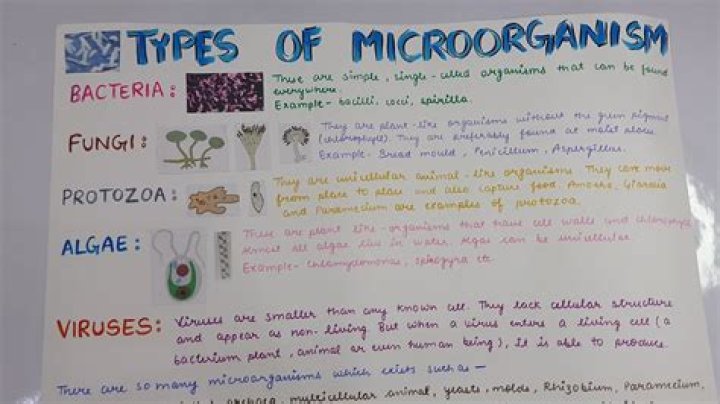 TYPES OF MICROORGANISM
BACTERIA:
These are simple, single-celled organisms that can be found
everywhere.
Example- bacilli, cocci, spirilla.
FUNGI:
They are plant-like organisms without the green pigment
(chlorophyll). They are preferably found at moist places
Example- Bread mould, Penicillium, Aspergillus.
PROTOZOA:
They are unicellular animal-like organisms. They can move
from place to place and also capture food. Amoeba, Giardia
and Paramecium are examples of protozoa.
ALGAE:
These are plant like-organisms that have cell walls and
Almost all algae live in water. Algae can be unicellular.
Example- Chlamydomonas, spirogyra etc
VIRUSES:
Viruses are smaller than any known cell. They lack cellular structure
and appear as non-living. But when a virus enters a living cell (a
bacterium plant, animal or even human being), it is able to produce.
There are so many microorganisms which exists such as —
archaea, multicellular animal, yeasts, molds, Rhizobium, Paramecium,